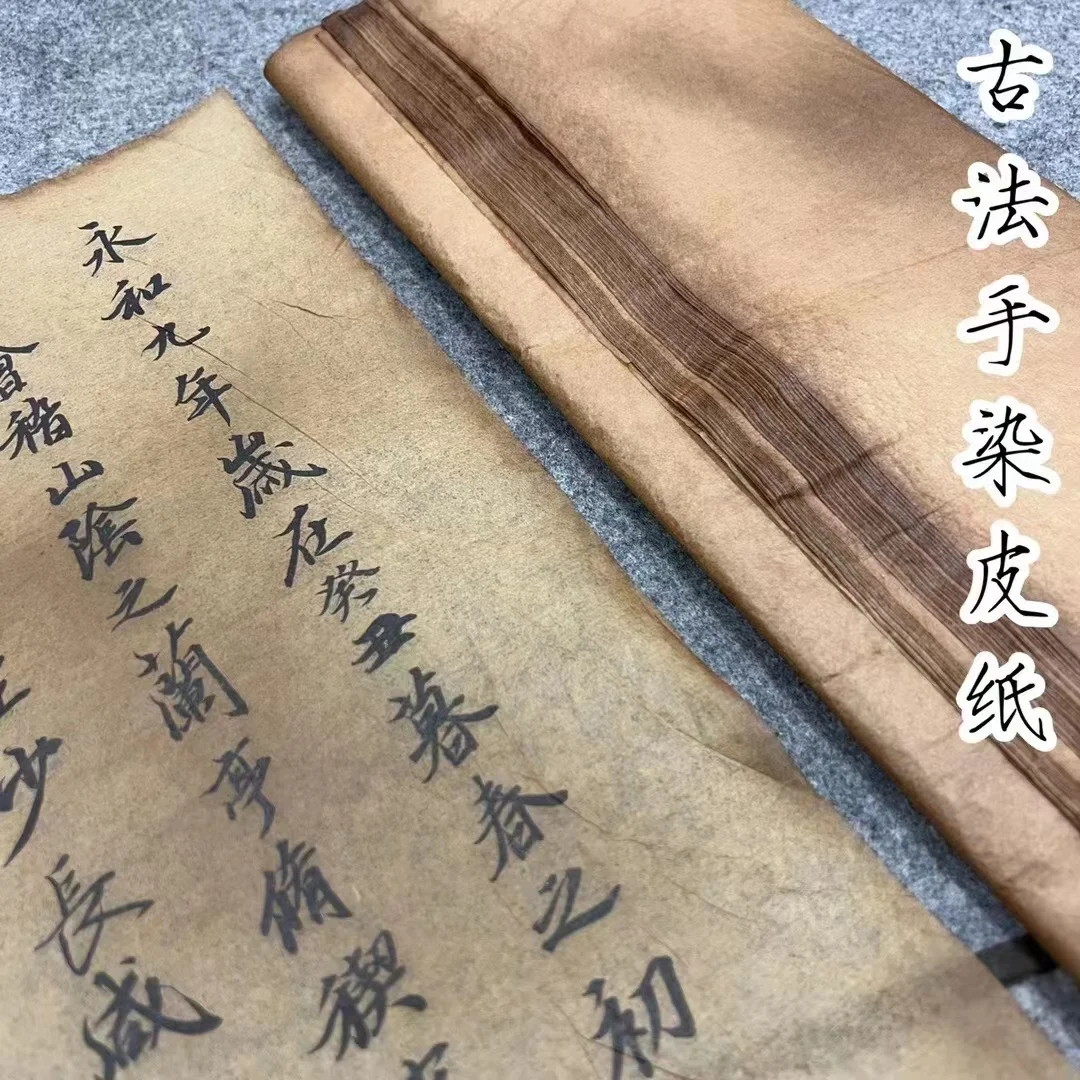 古法手染皮纸
永和九年歲在癸丑暮春之初
會稽山陰之蘭亭脩禊
少長咸